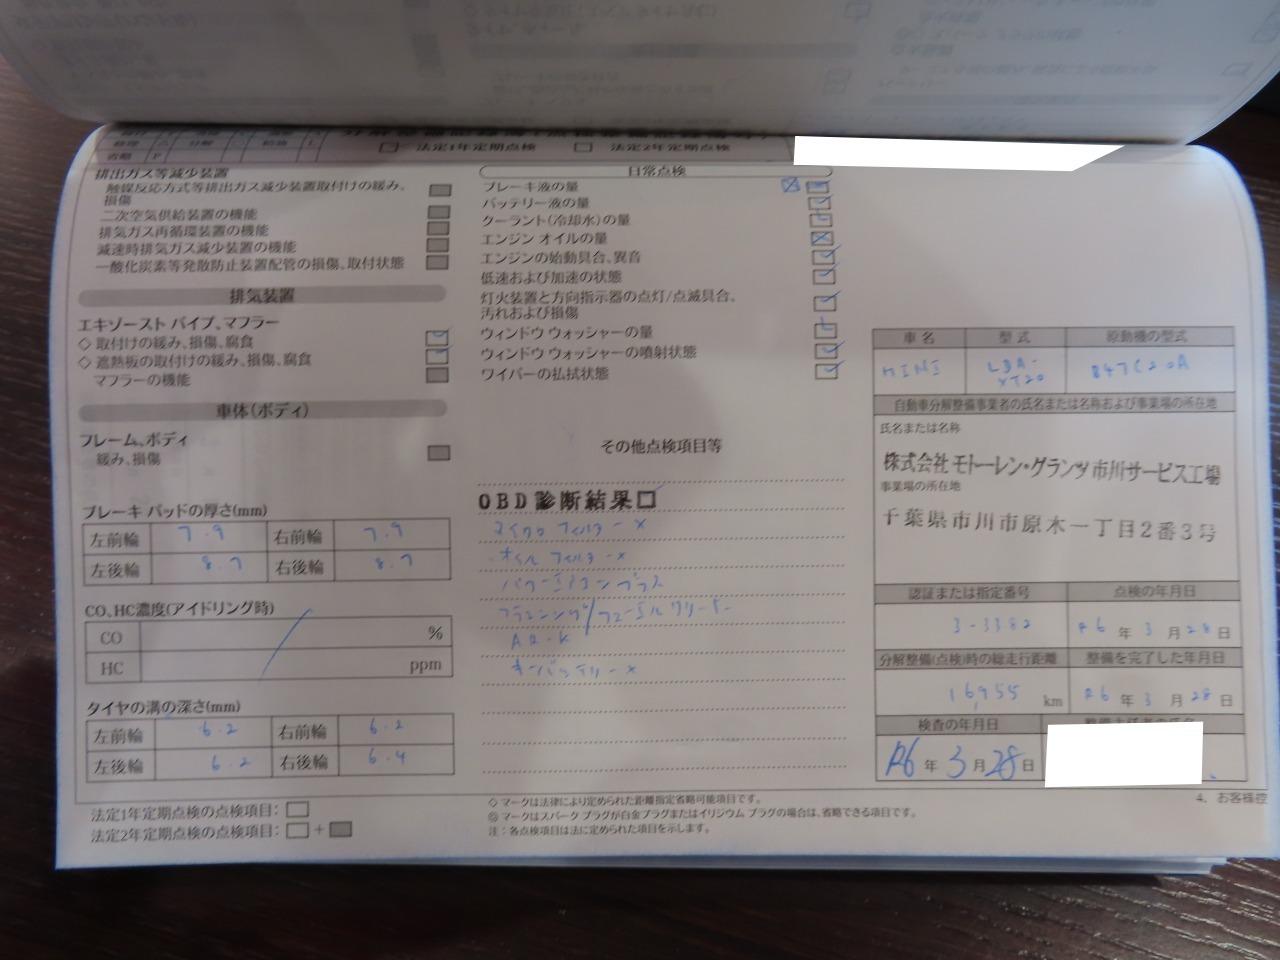 省略 P
法定1年定期点検 法定2年定期点検
排出ガス等減少装置
触媒反応方式等排出ガス減少装置取付けの緩み、
損傷
二次空気供給装置の機能
排気ガス再循環装置の機能
減速時排気ガス減少装置の機能
一酸化炭素等発散防止装置配管の損傷、取付状態
排気装置
エキゾースト パイプ、マフラー
◇ 取付けの緩み、損傷、腐食
◇ 遮熱板の取付けの緩み、損傷、腐食
マフラーの機能
車体(ボディ)
フレーム、ボディ
緩み、損傷
ブレーキ パッドの厚さ(mm)
左前輪 7.9 右前輪 7.9
左後輪 8.7 右後輪 8.7
CO、HC濃度(アイドリング時)
CO %
HC ppm
タイヤの溝の深さ(mm)
左前輪 6.2 右前輪 6.2
左後輪 6.2 右後輪 6.4
法定1年定期点検の点検項目:
法定2年定期点検の点検項目: +
日常点検
ブレーキ液の量
バッテリー液の量
クーラント(冷却水)の量
エンジン オイルの量
エンジンの始動具合、異音
低速および加速の状態
灯火装置と方向指示器の点灯/点滅具合、
汚れおよび損傷
ウィンドウ ウォッシャーの量
ウィンドウ ウォッシャーの噴射状態
ワイパーの払拭状態
その他点検項目等
OBD診断結果
マイクロフィルター X
オイルフィルター X
パワーエアコンプラス
フラッシング/フューエルクリーナー
キーバッテリー X
◇ マークは法律により定められた距離指定省略可能項目です。
◎ マークはスパーク プラグが白金プラグまたはイリジウム プラグの場合は、省略できる項目です。
注:各点検項目は法に定められた項目を示します。
車名 型式 原動機の型式
MINI LDA-XT20 B47C20A
自動車分解整備事業者の氏名または名称および事業場の所在地
氏名または名称
株式会社 モトーレン・グランツ 市川サービス工場
事業場の所在地
千葉県市川市原木一丁目2番3号
認証または指定番号 点検の年月日
3-3382 R6 年 3 月 28 日
分解整備(点検)時の総走行距離 整備を完了した年月日
16955 km R6 年 3 月 28 日
検査の年月日
R6 年 3 月 28 日
4. お客様控